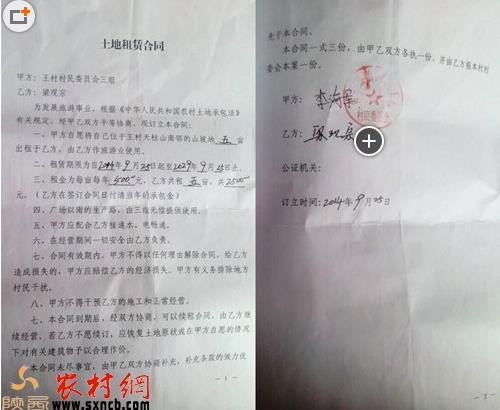 土地租赁合同
甲方：王村村民委员会三组
乙方：梁现宗
为发展旅游事业，根据《中华人民共和国农村土地承包法》
有关规定，经甲乙双方平等协商，现订立本合同：
一、甲方自愿将自己位于王村天柱山南邻的山坡地 五 亩
出租于乙方，由乙方作旅游业使用。
二、租赁期限为自2014年9月25日起至2029年9月25日止。
三、租金为每亩每年 500.00元，乙方共租 五 亩，共2500.00
元。（乙方在签订合同日付清当年的承包金）
四、广场以南的生产路，由三组无偿提供使用。
五、甲方应配合乙方接通水、电畅通。
六、在经营期间一切安全由乙方负责。
七、合同有效期内，甲方不得以任何理由解除合同，给乙方
造成损失的，甲方应赔偿乙方的经济损失。甲方有义务排除地方
村民干扰。
八、甲方不得干预乙方的施工和正常经营。
九、本合同到期后，经双方协商，可以续租合同，由乙方继
续经营。若乙方不愿续订，应恢复土地原状或在甲方自愿的情况
下对有关建筑物予以合理作价。
本合同未尽事宜，由甲乙双方协商补充，补充条款的效力优
- 1 -
先于本合同。
本合同一式三份，由甲乙双方各执一份，并由乙方报本村村
委会本案一份。
甲方：
村民委员会
乙方：
公证机关：
订立时间：2014年9月25日
- 2 -
陕西
农村網
www.sxncb.com